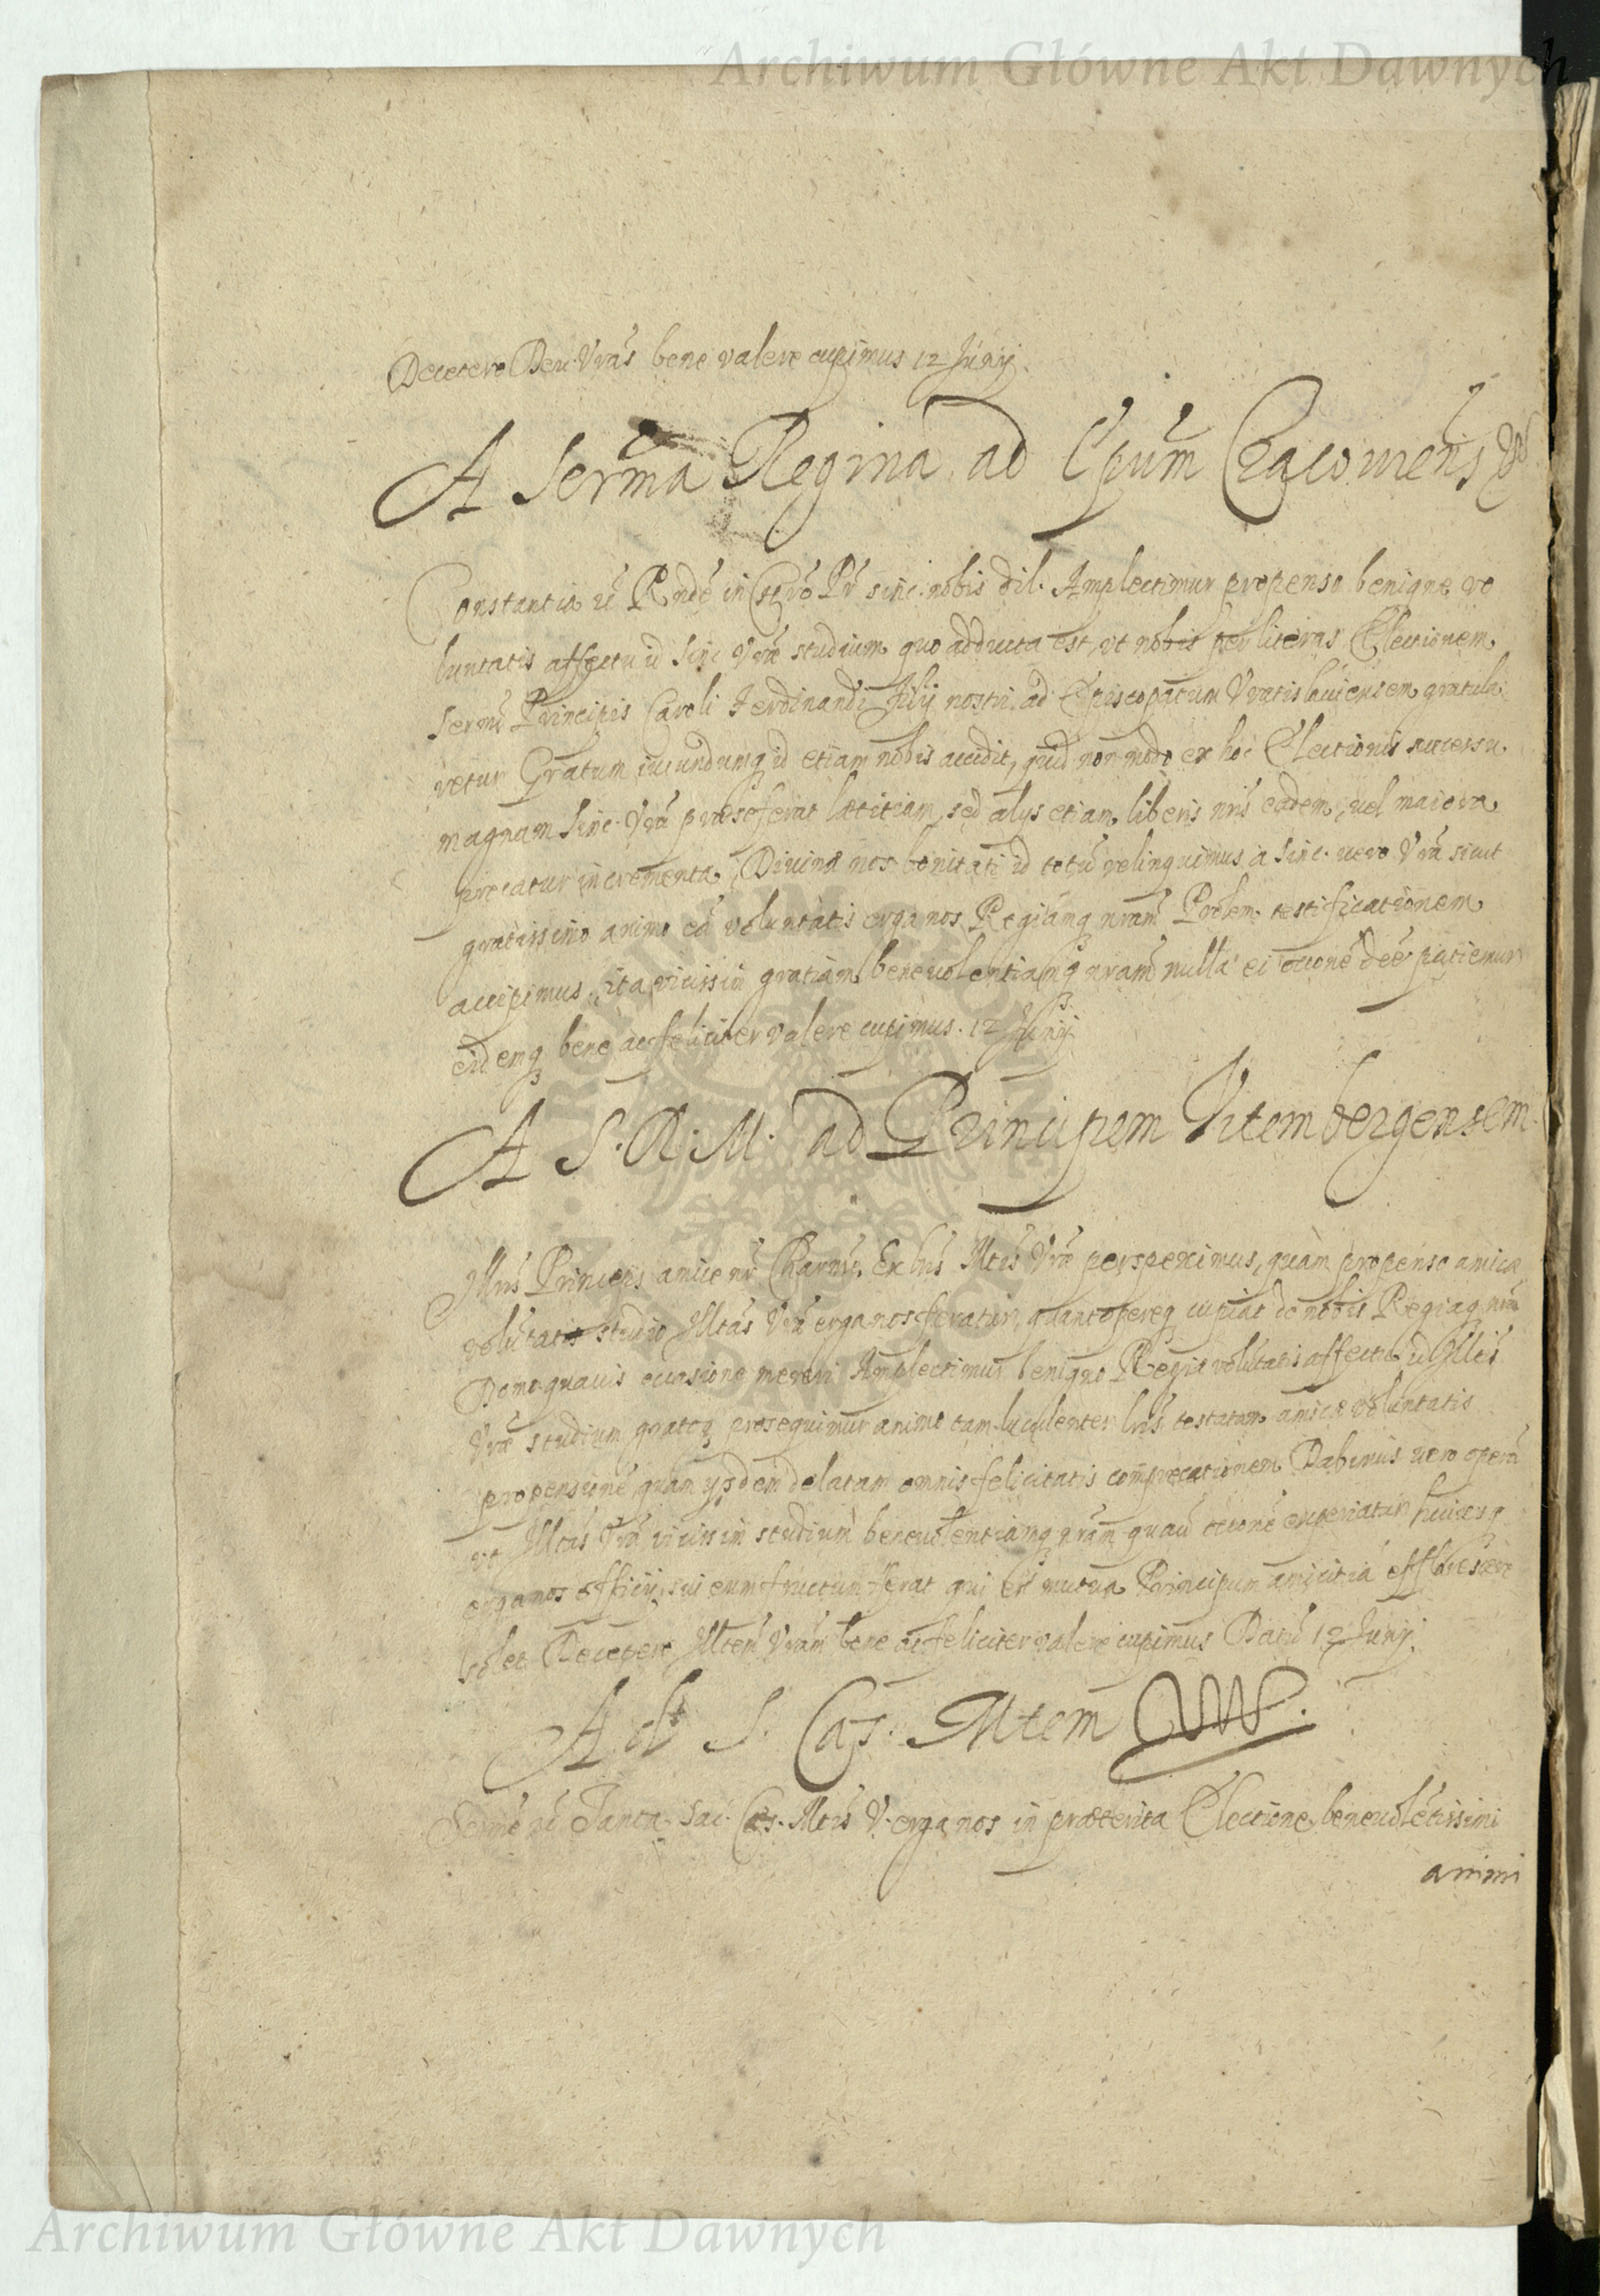 Archiwum Główne Akt Dawnych
De cetero Dev. Vrās bene valere cupimus 12 Junij.
A Serm̄a Regina ad Epūm Cracouiens̄
Constantia &c̄ Rnde in Chro Pr̄ sinc. nobis dil. Amplectimur propenso benignæ vo
luntatis affectu id Sinc Vræ studium quo adducta est, vt nobis per literas Electionem
Sermi Principis Caroli Ferdinandi filij nostri ad Episcopatum Vratislauiensem gratula
retur Gratum iucundumq id etiam nobis accidit, quod non modo ex hoc Electionis successu
magnam Sinc. Vrā præ se ferat lætitiam, sed alijs etiam liberis nris eadem, uel maiora
precatur incrementa, Divinæ nos bonitati id totū relinquimus, à Sinc. uero Vrā sicut
gratissimo animo eā voluntatis erga nos Regiāmq nram Prolem testificationem
accipimus, ita vicissim gratiam beneuolentiamq nram nullā ei occōne deēe patiemur
eidemq bene ac feliciter valere cupimus. 12 Junij
A S. R. M. ad Principem Vitembergensem.
Illmē Princeps amice nr̄ Charme. Ex lris Iltis Vræ perspeximus, quàm propenso amicæ
volūtatis studio Illtas Vrā erga nos feratur, quantopereq cupiat de nobis Regiaq nrā
Domo quauis occasione mereri Amplectimur benigno Regiæ volūtatis affectu id Illtis
Vræ studium gratoq prosequimur animo tam luculenter lris testatam amicæ voluntatis
propensionē, quàm ijsdem delatam omnis felicitatis comprecationem Dabimus uero operā
vt Illtas Vrā vicissim studium beneuolentiamq nram quauis occōne experiatur, huiusq
erga nos officij sui eum fructum ferat qui ex mutua Principum amicitiâ efflorescere
solet De cetero Illtem Vram bene ac feliciter valere cupimus Datū 12 Junij.
Ad S. Cæs. Mtem
Serme &c̄ Tanta Sac. Cæs. Mtis V. erga nos in præterita Electione beneuolētissimi
animi
Archiwum Główne Akt Dawnych